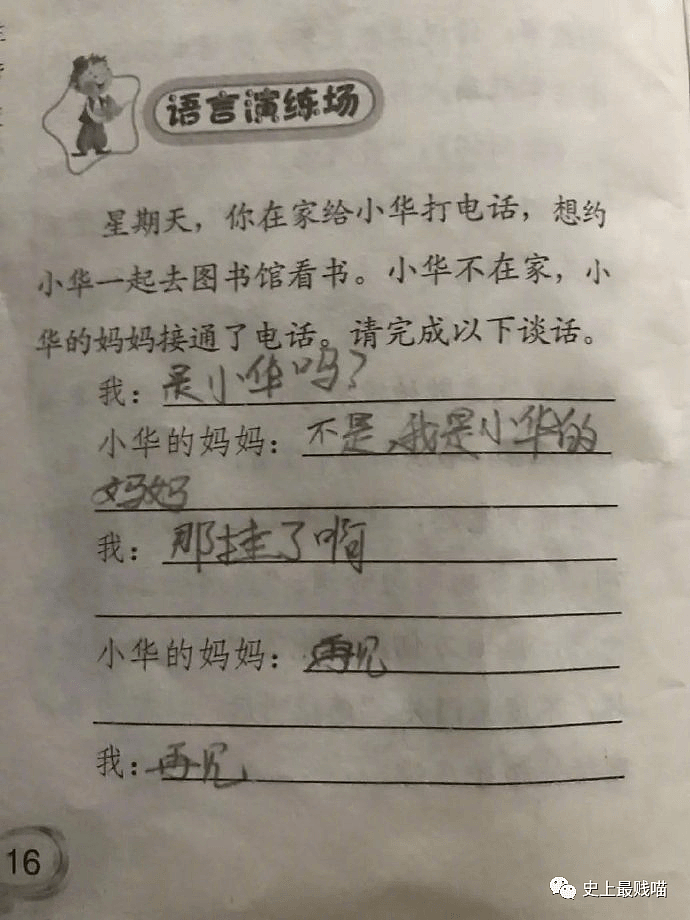 语言演练场
星期天，你在家给小华打电话，想约
小华一起去图书馆看书。小华不在家，小
华的妈妈接通了电话。请完成以下谈话。
我：是小华吗？
小华的妈妈：不是，我是小华的
妈妈
我：那挂了啊
小华的妈妈：再见
我：再见
16
史上最贱喵